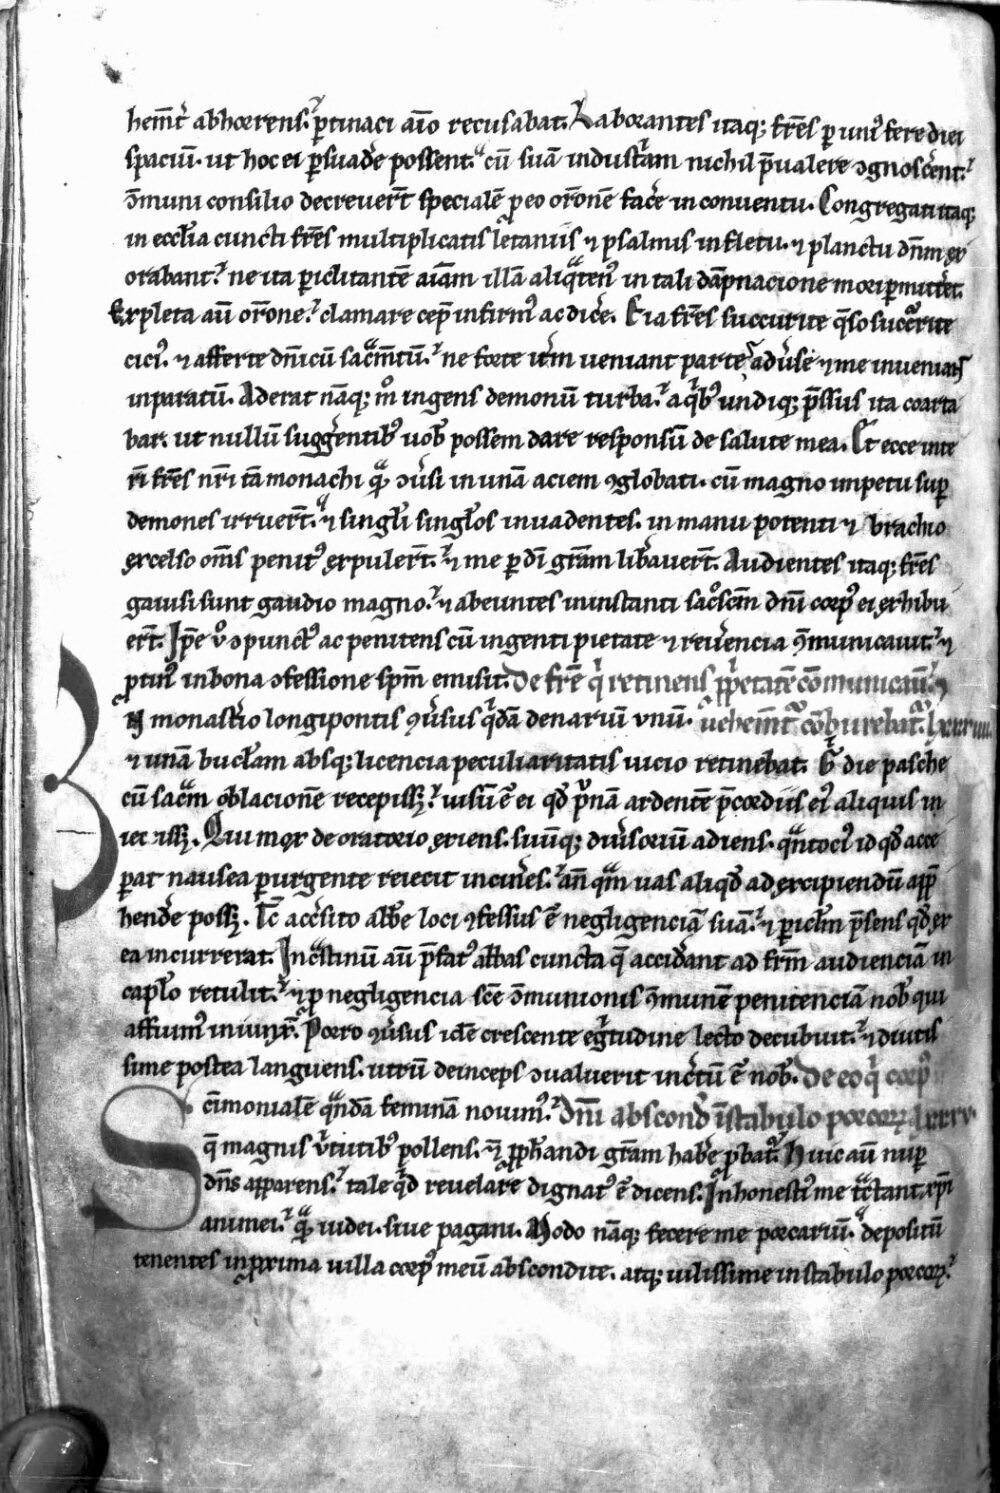 hem̄t᷑ abhorrens. ꝑtinaci aīo recusabat. Laborantes itaqꝫ fr̄es ꝑ uniꝰ fere diei
spaciū. ut hoc ei ꝑsuad̓e possent. cū suā industⁱam nichil p̄ualere ꝯgnosc̓ent.
ꝯmuni consilio decreuer̄t specialē p eo or̄onē fac̓e in conuentu. Congregati itaqꝫ
in eccl̄ia cuncti fr̄es multiplicatis letaniis ⁊ psalmis in fletu. ⁊ planctu dn̄m ex
orabant. ne ita periclitantē aīam illā aliqᵃtenꝰ in tali dāpnacione mori ꝑmitt̓et.
Expleta aū or̄one. clamare cep̄ infirmꝰ ac dic̓e. Eia fr̄es succurite q̄so succ̓rite
ciciꝰ. ⁊ afferte dn̄icū sac̄m̄tū. ne forte it̓m ueniant partes adu̓se ⁊ me inueniant
inparatū. Aderat nāqꝫ m° ingens demonū turba. a qⁱbꝰ undiqꝫ p̄ssus ita coarta
bar. ut nullū sugg̓entibꝰ uob̄ possem dare responsū de salute mea. Et ecce inte
rī fr̄es nr̄i tā monachi qᵃ ꝯu̓si in unā aciem ꝯglobati. cū magno impetu suꝑ
demones irruer̄t. ⁊ singl̄i singl̄os inuadentes. in manu potenti ⁊ brachio
excelso om̄s penitꝰ expuler̄t. ⁊ me ꝑ dī gr̄am lib̓auer̄t. Audientes itaqꝫ fr̄es
gauisi sunt gaudio magno. ⁊ abeuntes in instanti sac°sc̄m dn̄i corpꝰ ei exhibu
er̄t. Ip̄e v° ꝯpunctꝰ ac penitens cū ingenti pietate ⁊ reu̓encia ꝯmunicauit. ⁊
ptinꝰ in bona ꝯfessione spm̄ emisit. De fr̄e qⁱ retinens pp̄etatē cōmunicauit ⁊
N monast̓io longipontis ꝯu̓sus qⁱdā denariū vnū. uehem̄t᷑ cōburebat᷑. lxxxiiii.
⁊ unā bucl̄am absqꝫ licencia peculiaritatis uicio retinebat. Hⁱ die pasche
cū sac̄m oblacionē recepissꝫ. uisū ē ei qd̄ pⁱnā ardentē p̄cordiis eiꝰ aliquis in
iecissꝫ. Qui mox de oratorio exiens. suūqꝫ diu̓soriū adiens. qᵃntociꝰ id qd̄ acce
ꝑat nausea ꝑurgente reiecit in cin̓es. an̄ qᵃm uas aliqd̄ ad excipiendū app̄
hend̓e possꝫ. Tc̄ acc̓sito abb̄e loci ꝯfessus ē negligenciā suā. ⁊ ꝑicl̄m p̄sens qd̄ ex
ea incurrerat. In cᵃstinū aū p̄fatꝰ abbas cuncta q̄ accid̓ant ad fr̄m audienciā in
capl̄o retulit. ⁊ p negligencia sc̄e ꝯmunionis ꝯmunē penitenciā nob̄ qui
affuimꝰ iniunx̄. Porro ꝯu̓sus idē crescente eg̓tudine lecto decubuit. ⁊ diutis
sime postea languens. utrū deinceps ꝯualuerit inc̓tū ē nob̄. De eo qⁱ corpꝰ
Sc̄imonialē qᵃndā feminā nouimꝰ. dn̄i abscond̓ in stabulo porcorꝝ. lxxxv.
q̄ magnis v̓tutibꝰ pollens. ⁊ pph̄andi gr̄am hab̓e pbat᷑. Huic aū nuꝑ
dn̄s apparens. tale qⁱd reuelare dignatꝰ ē dicens. Inhonestiꝰ me tᵃctant xp̄i
ani mei. qᵃ iudei. siue pagani. Modo nāqꝫ fecere me porcariū. depositū
tenentes in pxima uilla corpꝰ meū abscondite. atqꝫ uilissime in stabulo porcorꝝ.